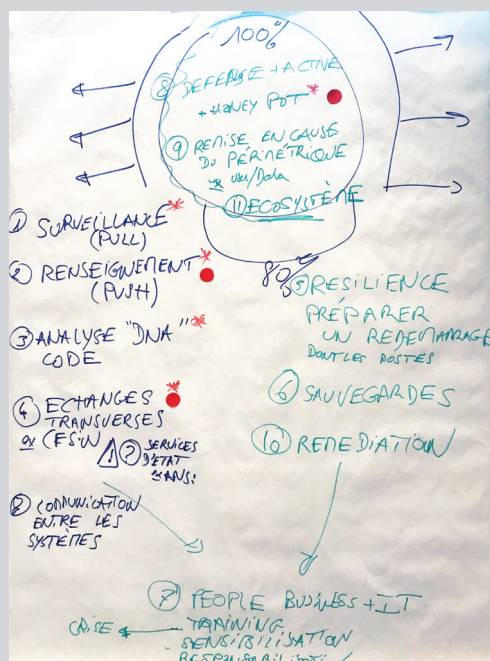 100%
⑧ DEFENSE + ACTIVE
+ HONEY POT *
⑨ REMISE EN CAUSE
DU PÉRIMÉTRIQUE
ex user/Data
⑪ ECOSYSTÈME
80%
① SURVEILLANCE *
(PULL)
② RENSEIGNEMENT *
(PUSH)
③ ANALYSE "DNA" *
CODE
④ ECHANGES *
TRANSVERSES
ex CESIN
⚠ ? SERVICES
D'ETAT
② COMMUNICATION
ENTRE LES
SYSTÈMES
⑤ RESILIENCE
PRÉPARER
UN REDEMARRAGE
DONT LES POSTES
⑥ SAUVEGARDES
⑩ REMEDIATION
⑦ PEOPLE BUSINESS + IT
CRISE ← - TRAINING
- SENSIBILISATION